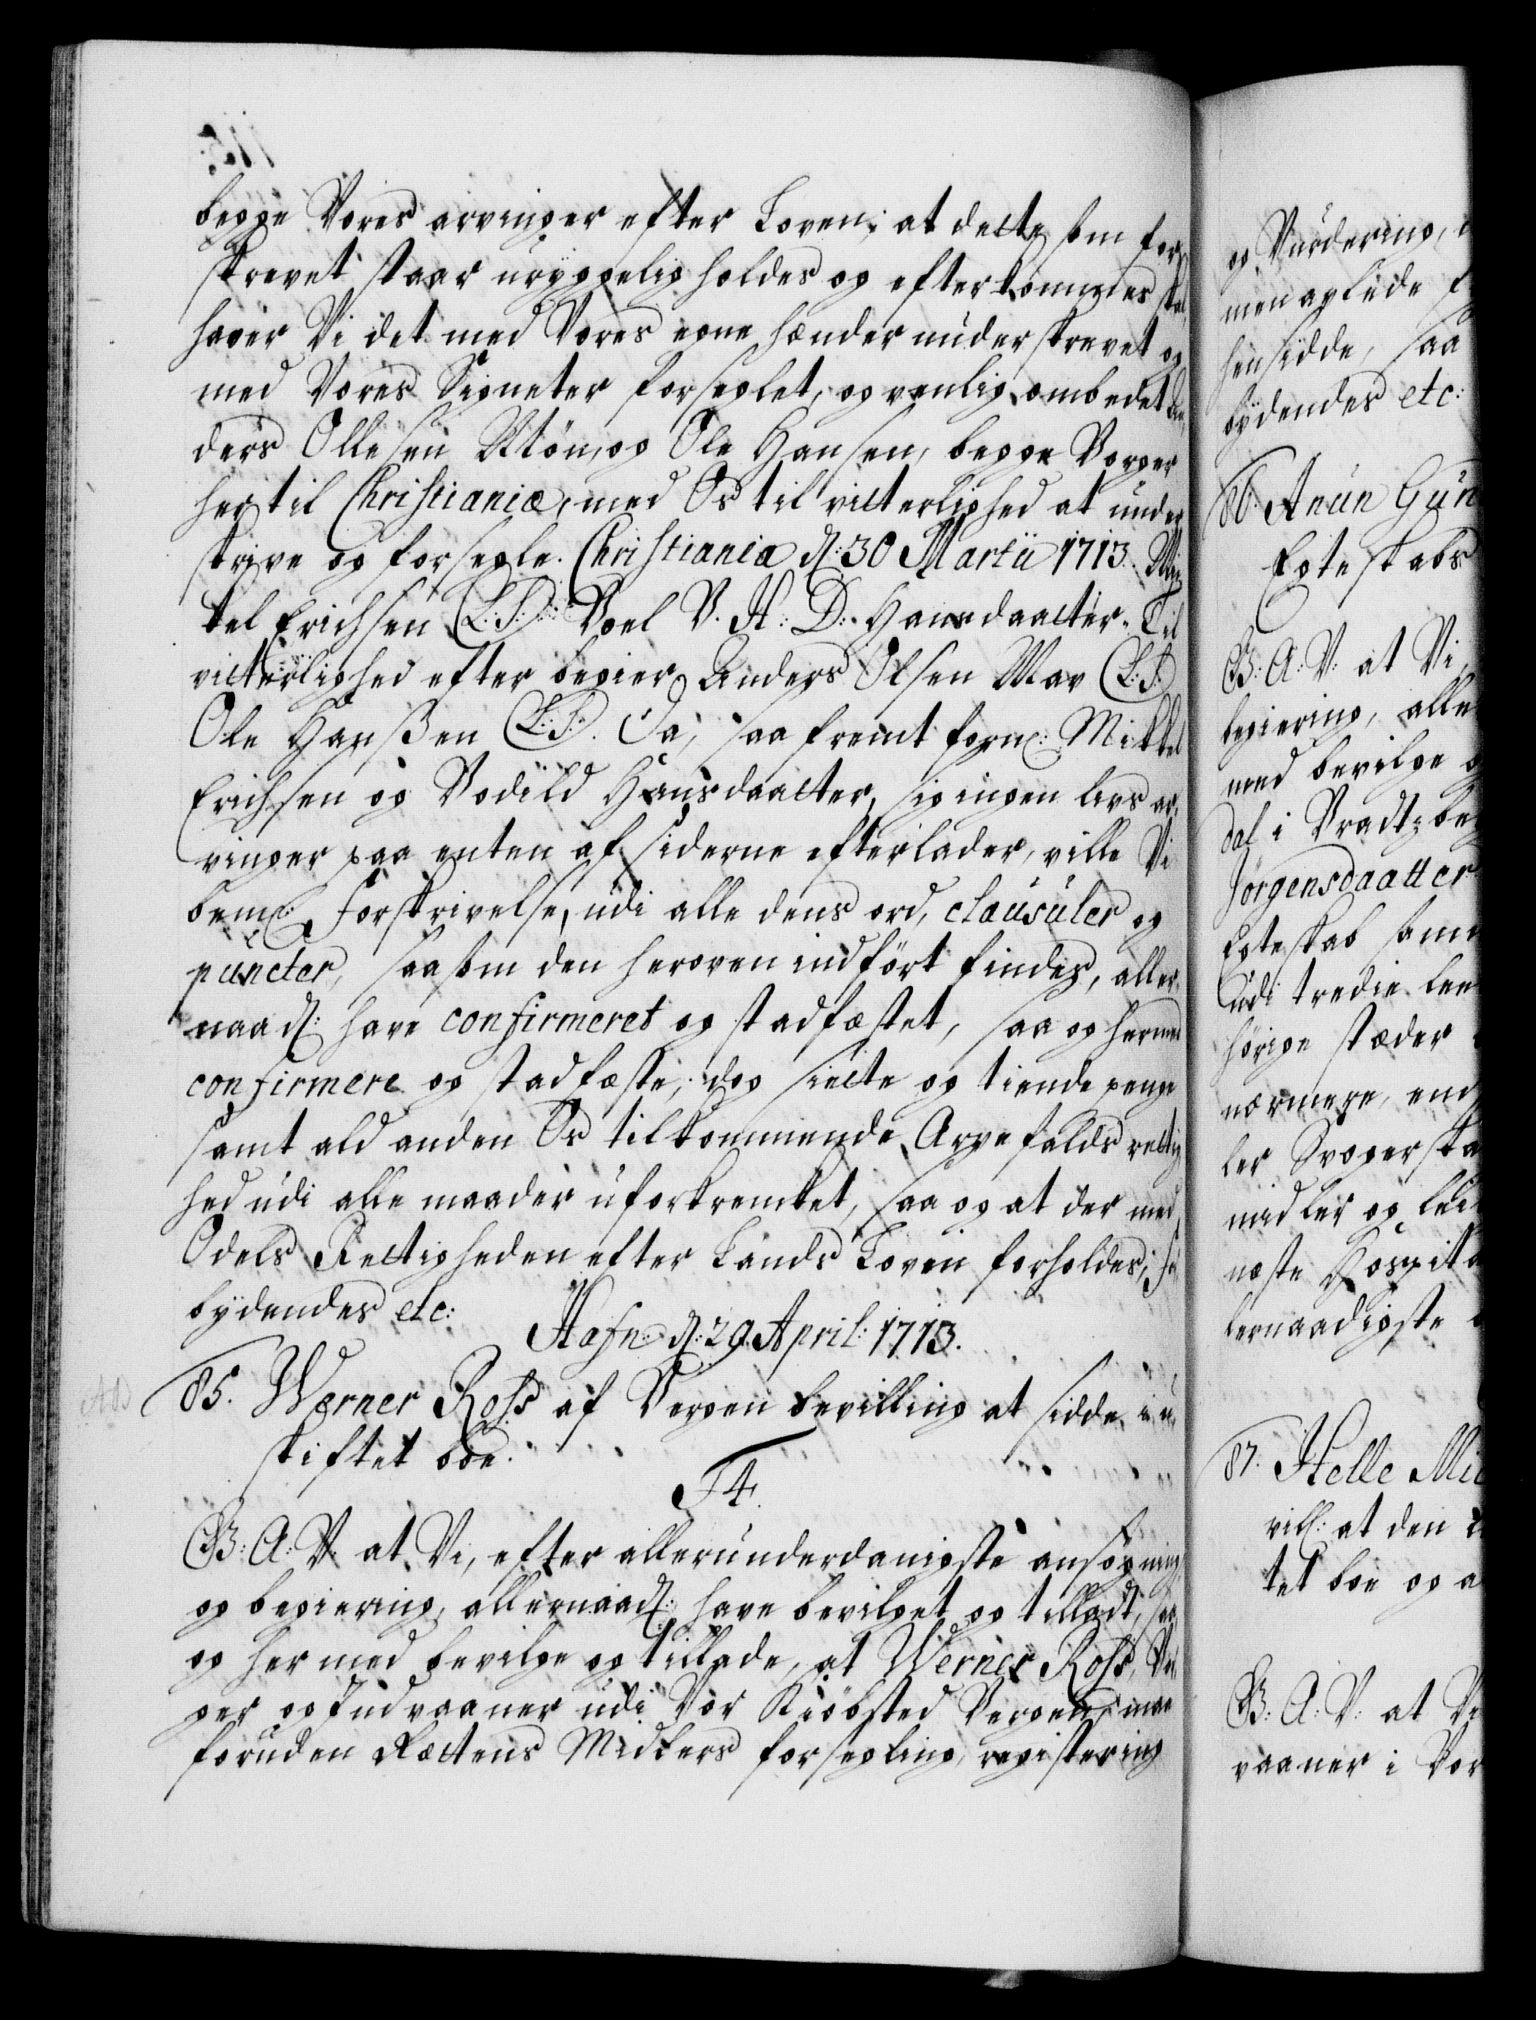 begge Vores arvinger efter Loven; at dette som for
skrevet staar uryggelig holdes og efterkommes skal
haver Vi det med Vores egne hænder underskrevet og
med Vores Signeter forseglet, og venlig ombedet An,
ders Ollesen og Ole Hansen, begge Borger
her til Christianiæ, med Os til vitterlighed at under
skrive og forsegle. Christiania d: 30 Martii 1713. Mi
kel Erichsen L.S. Boel V. H: D: Hansdaatter. Til
vitterlighed efter begier Anders Olsen L:S:
Ole Hanßen L:S: Da, saafremt forn: Mikkel
Erichsen og Bodild Hansdaatter, sig ingen livs ar,
vinger paa enten af siderne efterlader, ville Vi
bem: Forskrivelse, udi alle dens ord, clausuler og
puncter, saasom den heroven indført findes, aller,
naad: have confirmeret og stadfæstet, saa og hermed
confirmere og stadfæste, dog siette og tiende penge
samt ald anden Os tilkommende Arvefalds rettig
hed udi alle maader uforkrenket, saa og at der med
Odels Rettigheden efter Lands Loven forholdes; for
bydendes etc:
Hafn: d: 29. April: 1713.
85. Werner Rohs af Bergen bevilling at sidde i u,
skiftet boe.
F4.
G: A: V: at Vi, efter allerunderdanigste ansøgning
og begiering, allernaad: have bevilget og tilladt, saa
og hermed bevilge og tillade, at Werner Rohs, Bor,
ger og Indvaaner udi Vor Kiøbsted Bergen, maa
foruden Rættens Midlers forsegling, registering
og Vurdering,
men aflede
hensidde, saa
bydendes etc:
86. Anun Gun
Egteskabs
G: A: V: at Vi,
begiering, alle
med bevilge
dal i Bradtzbe
Jørgensdaatter
Egteskab samm
udi tredie lee
hørige stæder
nærmere, end
ler Svogerska
midler og lei
næste Hospita
lernaadigste
87. Helle Mi
vill: at den
tet boe og a
G: A: V: at Vi
vaaner i Vor